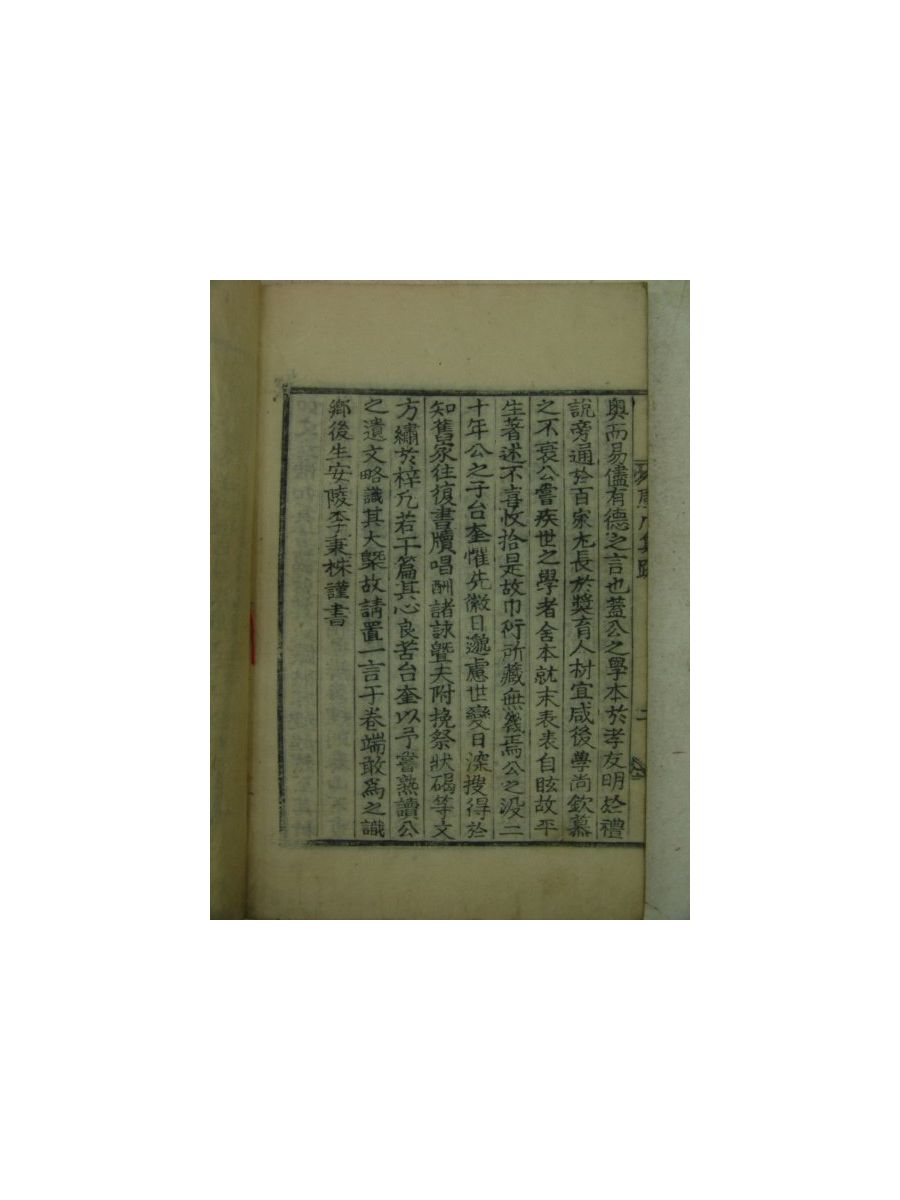 奧而易儘有德之言也蓋公之學本於孝友明於禮
說旁通於百家尤長於奬育人材宜咸後學尚欽慕
之不衰公嘗疾世之學者舍本就末表表自眩故平
生著述不喜收拾是故巾衍所藏無幾焉公之沒二
十年公之子台奎懼先徽日邈慮世變日深搜得於
知舊家往復書牘唱酬諸詠曁夫附挽祭狀碣等文
方繡於梓凡若干篇其心良苦台奎以予嘗熟讀公
之遺文略識其大槩故請置一言于卷端敢爲之識
鄕後生安陵李秉株謹書